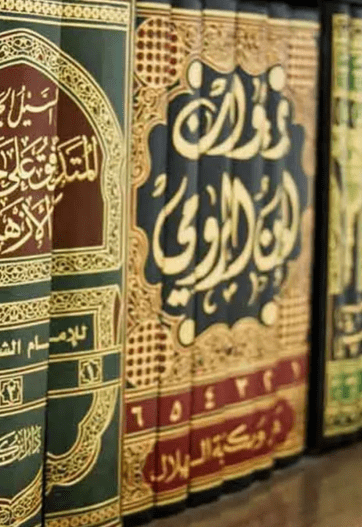 السيل الج
المتدفق على ح
الأزه
للإمام الش
١
٢
ديوان
ابن الرومي
٦ ٥ ٤ ٣ ٢ ١
دار ومكتبة الهلال